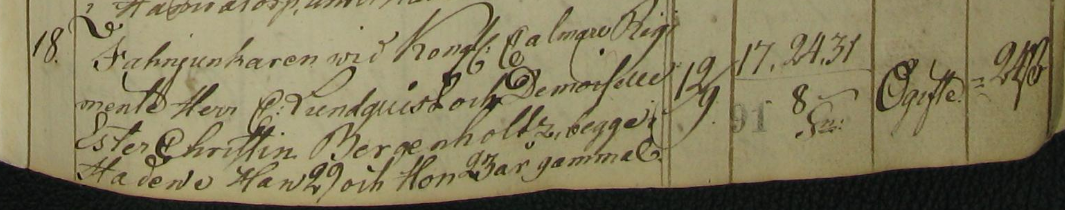 18. Fahnjunkaren wid Kongl: Calmare Regi 12/9 17. 24. 31 Ogifte. = 24 ß
mente Herr C: Lundquist och Demoiselle 8
Ester Christin Bergenholtz, begge i 91
Hadene Han 29 och Hon 23 år gammal.